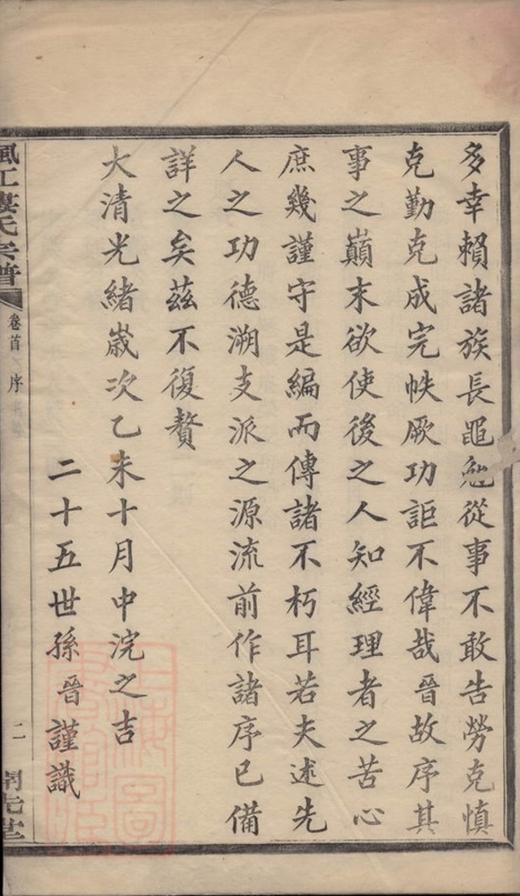 多幸賴諸族長黽勉從事不敢告勞克慎
克勤克成完帙厥功詎不偉哉晉故序其
事之巔末欲使後之人知經理者之苦心
庶幾謹守是編而傳諸不朽耳若夫述先
人之功德溯支派之源流前作諸序已備
詳之矣茲不復贅
大清光緒歲次乙未十月中浣之吉
二十五世孫晉謹識
氏宗譜
卷首
序
二
堂